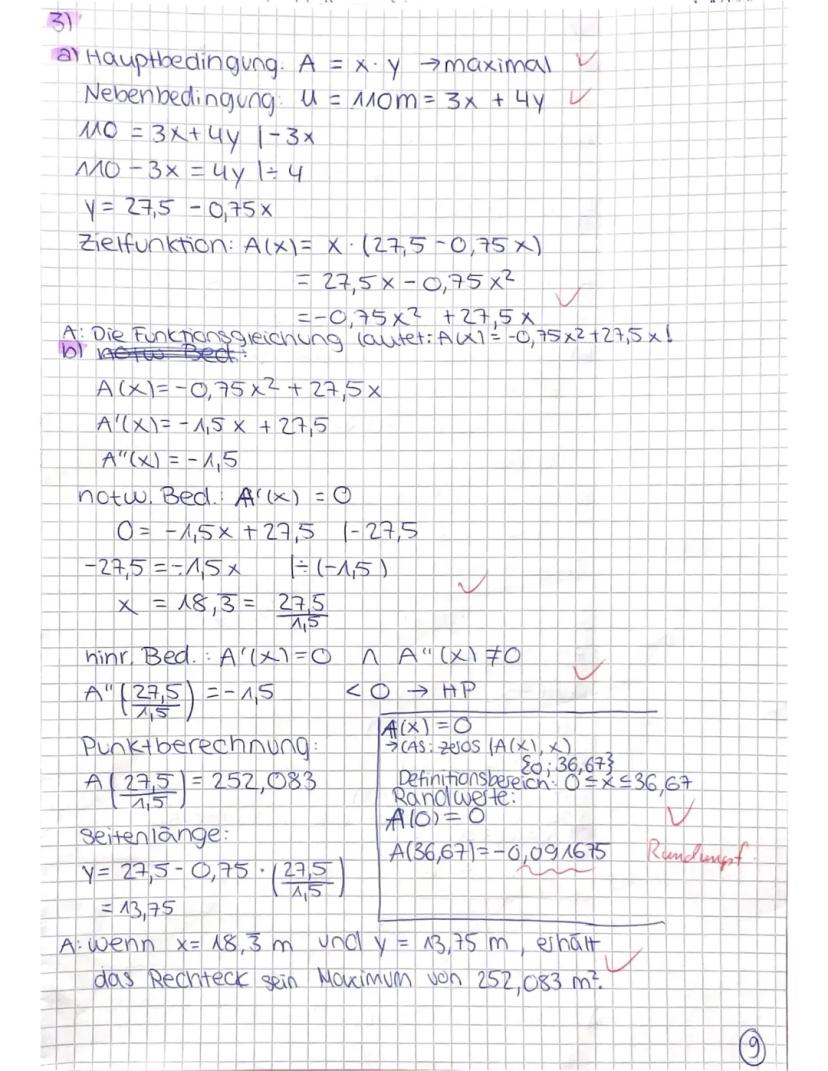 3)
a) Hauptbedingung: A = x · y → maximal ✓
Nebenbedingung: U = 110m = 3x + 4y ✓
110 = 3x + 4y |-3x
110 - 3x = 4y |÷ 4
y = 27,5 - 0,75x
Zielfunktion: A(x) = x · (27,5 - 0,75x)
= 27,5x - 0,75x²
= -0,75x² + 27,5x ✓
A: Die Funktionsgleichung lautet: A(x) = -0,75x² + 27,5x!
b) notw. Bed.:
A(x) = -0,75x² + 27,5x
A'(x) = -1,5x + 27,5
A"(x) = -1,5
notw. Bed.: A'(x) = 0
0 = -1,5x + 27,5 |-27,5
-27,5 = -1,5x |÷(-1,5)
x = 18,3̅ = 27,5/1,5 ✓
hinr. Bed.: A'(x) = 0 ∧ A"(x) ≠ 0 ✓
A"(27,5/1,5) = -1,5 < 0 → HP
Punktberechnung:
A(27,5/1,5) = 252,083
Seitenlänge:
y = 27,5 - 0,75 · (27,5/1,5)
= 13,75
A(x) = 0
→ CAS: zeros (A(x), x)
{0; 36,67}
Definitionsbereich: 0 ≤ x ≤ 36,67
Randwerte: ✓
A(0) = 0
A(36,67) = -0,091675
A: Wenn x = 18,3̅ m und y = 13,75 m, erhält
das Rechteck sein Maximum von 252,083 m². ✓
9